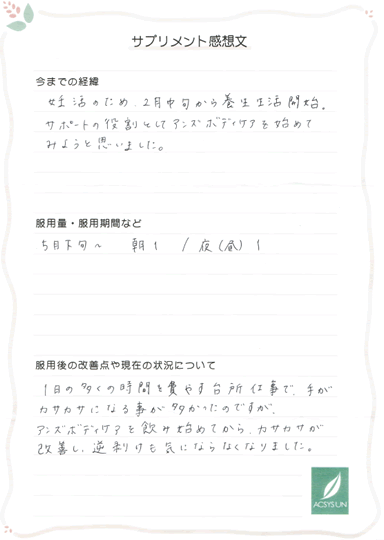 サプリメント感想文
今までの経緯
妊活のため、2月中旬から養生生活開始。
サポートの役割としてアンズボディケアを始めて
みようと思いました。
服用量・服用期間など
5月下旬〜　朝1　/　夜(昼)1
服用後の改善点や現在の状況について
1日の多くの時間を費やす台所仕事で、手が
カサカサになる事が多かったのですが、
アンズボディケアを飲み始めてから、カサカサが
改善し、逆剥けも気にならなくなりました。
ACSYSUN